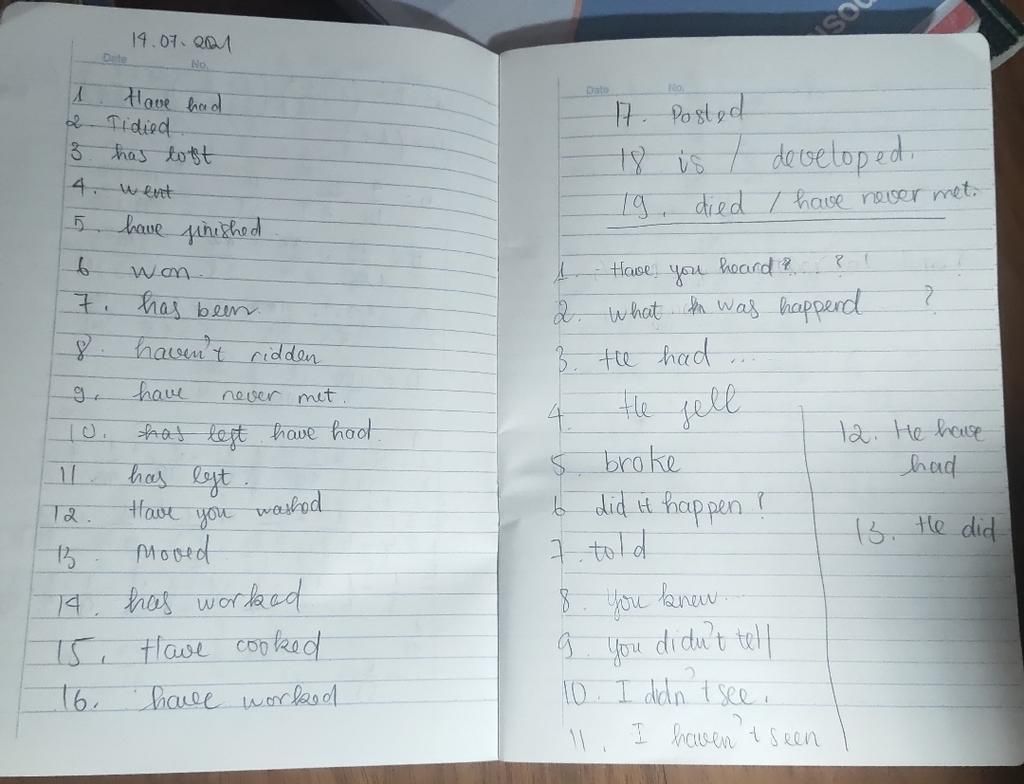 14.07.2021
Date No.
1 Have had
2 Tidied
3 has lost
4. went
5. have finished
6 won.
7. has been.
8. haven't ridden
9. have never met.
10. has left have had
11 has left.
12. Have you washed
13 Moved
14. has worked
15. Have cooked
16. have worked
Date No.
17. Posted
18 is / developed.
19. died / have never met.
1. Have you heard? ...?
2. what was happend ?
3. He had ...
4. He fell
5. broke
6 did it happen?
7. told
8. you knew...
9. you didn't tell
10. I didn't see.
11. I haven't seen
12. He have
had
13. He did